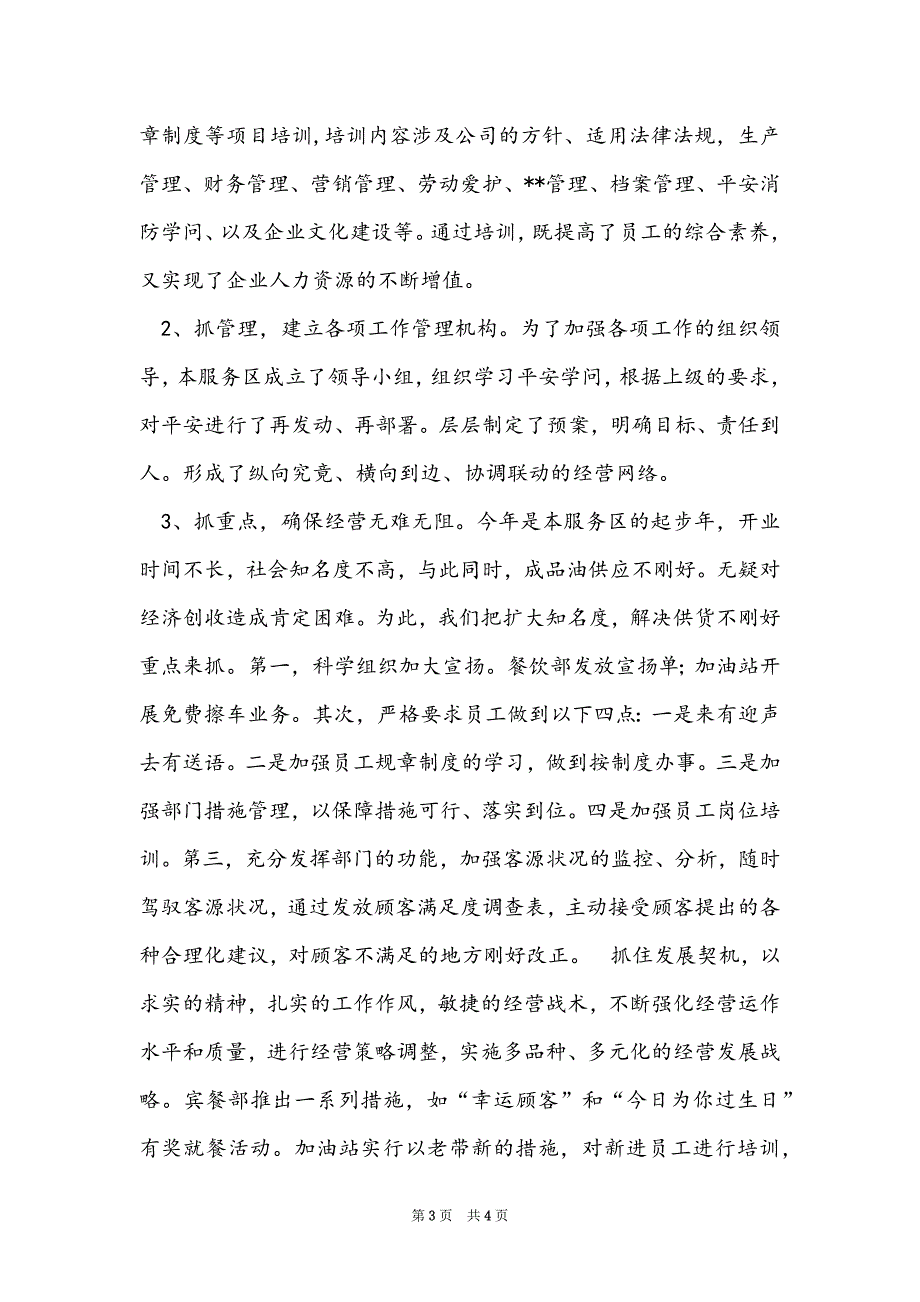 章制度等项目培训,培训内容涉及公司的方针、适用法律法规，生产
管理、财务管理、营销管理、劳动爱护、**管理、档案管理、平安消
防学问、以及企业文化建设等。通过培训，既提高了员工的综合素养，
又实现了企业人力资源的不断增值。
2、抓管理，建立各项工作管理机构。为了加强各项工作的组织领
导，本服务区成立了领导小组，组织学习平安学问，根据上级的要求，
对平安进行了再发动、再部署。层层制定了预案，明确目标、责任到
人。形成了纵向究竟、横向到边、协调联动的经营网络。
3、抓重点，确保经营无难无阻。今年是本服务区的起步年，开业
时间不长，社会知名度不高，与此同时，成品油供应不刚好。无疑对
经济创收造成肯定困难。为此，我们把扩大知名度，解决供货不刚好
重点来抓。第一，科学组织加大宣扬。餐饮部发放宣扬单；加油站开
展免费擦车业务。其次，严格要求员工做到以下四点：一是来有迎声
去有送语。二是加强员工规章制度的学习，做到按制度办事。三是加
强部门措施管理，以保障措施可行、落实到位。四是加强员工岗位培
训。第三，充分发挥部门的功能，加强客源状况的监控、分析，随时
驾驭客源状况，通过发放顾客满足度调查表，主动接受顾客提出的各
种合理化建议，对顾客不满足的地方刚好改正。　抓住发展契机，以
求实的精神，扎实的工作作风，敏捷的经营战术，不断强化经营运作
水平和质量，进行经营策略调整，实施多品种、多元化的经营发展战
略。宾餐部推出一系列措施，如“幸运顾客”和“今日为你过生日”
有奖就餐活动。加油站实行以老带新的措施，对新进员工进行培训，
第 3 页　共 4 页